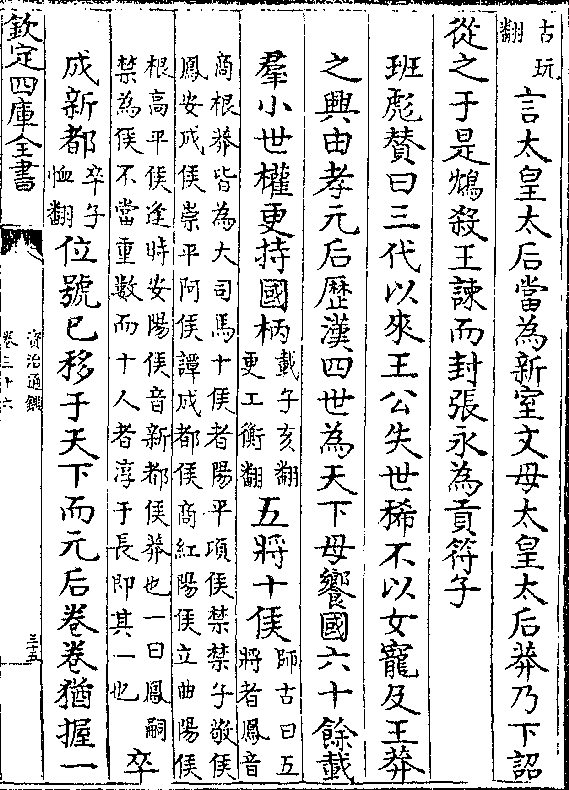 古玩
翻
言太皇太后當為新室文母太皇太后莽乃下詔
從之于是鴆殺王諫而封張永為貢符子
班彪贊曰三代以來王公失世稀不以女寵及王莽
之興由孝元后歷漢四世為天下母饗國六十餘載
羣小世權更持國柄
載子亥翻
更工衡翻
五將十侯
師古曰五
將者鳳音
商根莽皆為大司馬十侯者陽平項侯禁禁子敬侯
鳳安成侯崇平阿侯譚成都侯商紅陽侯立曲陽侯
根高平侯逢時安陽侯音新都侯莽也一曰鳳嗣
禁為侯不當重數而十人者淳于長即其一也
卒
成新都
卒子
恤翻
位號已移于天下而元后卷卷猶握一
欽定四庫全書
資治通鑑
卷三十六
三十五